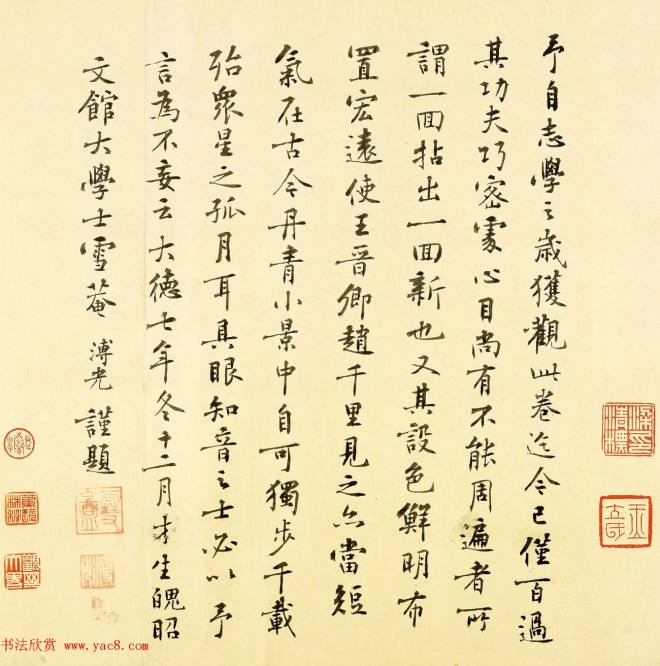 予自志學之歲獲觀此卷迄今已僅百過
其功夫巧密處心目尚有不能周遍者所
謂一回拈出一回新也又其設色鮮明布
置宏遠使王晉卿趙千里見之亦當短
氣在古今丹青小景中自可獨步千載
殆衆星之孤月耳具眼知音之士必以予
言為不妄云大德七年冬十二月才生魄昭
文館大學士雪菴溥光謹題
书法欣赏 www.yac8.com